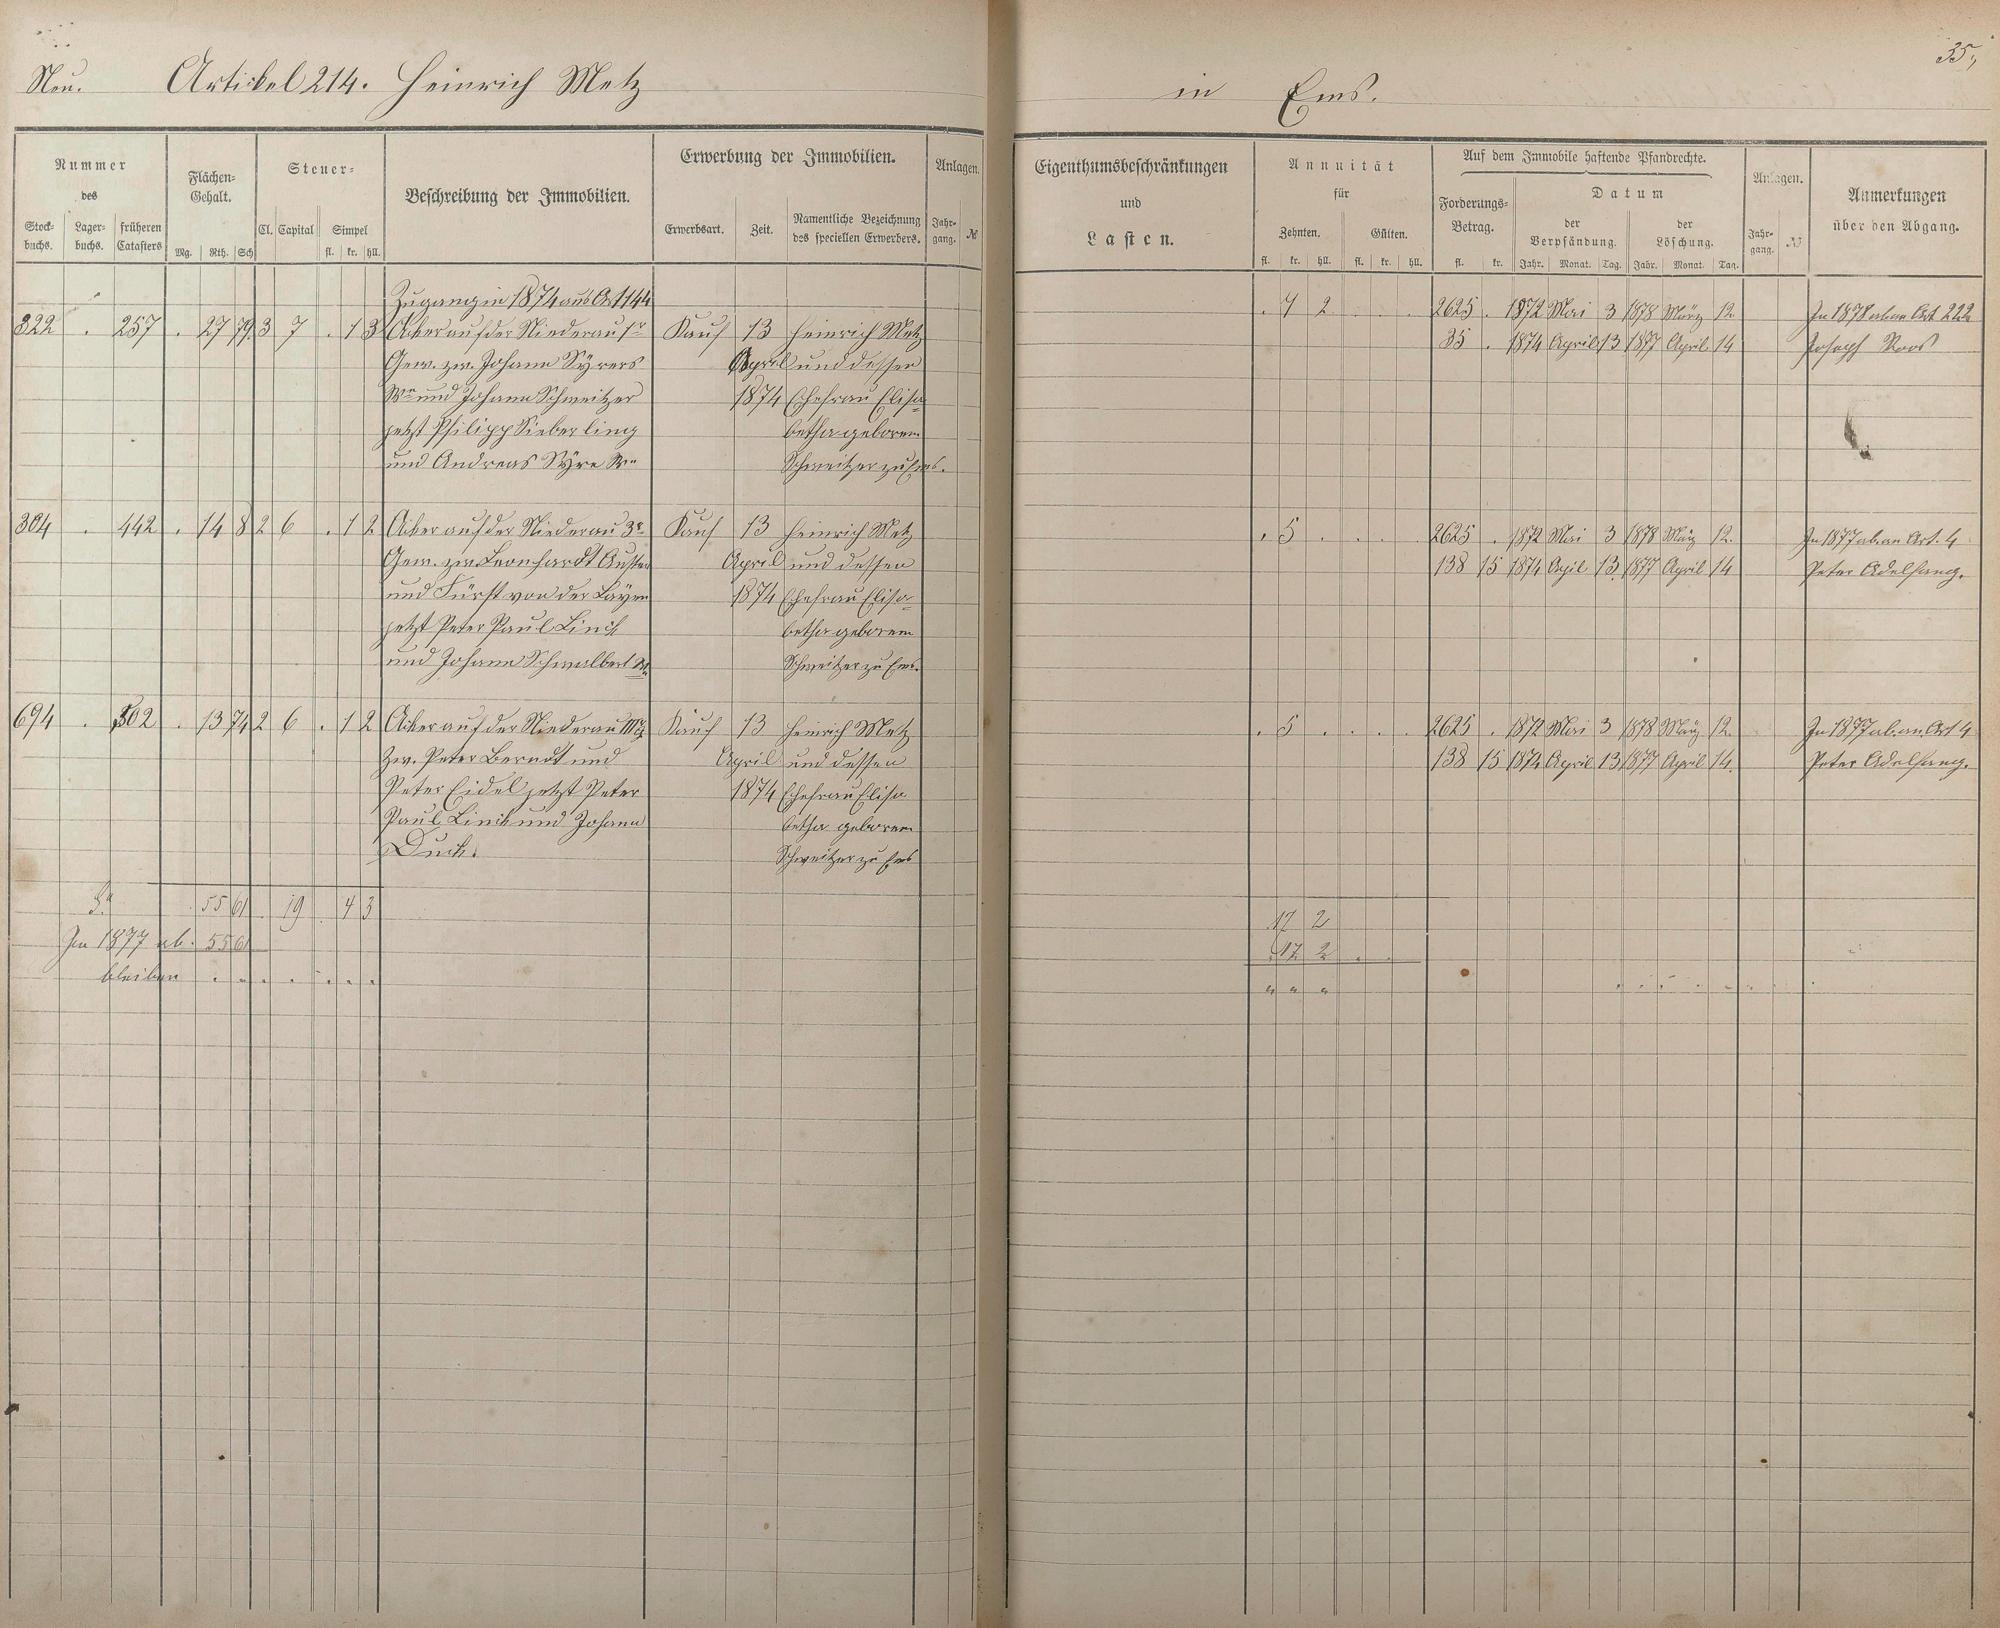 35,
Neu. Artikel 214. Heinrich Metz in Ems.
Nummer des
Stock-buchs. Lager-buchs. früheren Catasters
Flächen-Gehalt.
Mg. Rth. Sch
Steuer-
Cl. Capital Simpel
fl. kr. hll.
Beschreibung der Immobilien.
Erwerbung der Immobilien.
Erwerbsart. Zeit. Namentliche Bezeichnung des speciellen Erwerbers.
Anlagen.
Jahr-gang. №
Eigenthumsbeschränkungen
und
Lasten.
Annuität
für
Zehnten. Gülten.
fl. kr. hll. fl. kr. hll.
Auf dem Immobile haftende Pfandrechte.
Forderungs-Betrag.
fl. kr.
Datum
der Verpfändung. der Löschung.
Jahr. Monat. Tag. Jahr. Monat. Tag.
Anlagen.
Jahr-gang. №
Anmerkungen
über den Abgang.
Zugang in 1874 aus Art 144
322 . 257 . 27 79 3 7 . 1 3 Acker auf der Niederau 1r Kauf 13 Heinrich Metz
Gew. zw. Johann Syrers April und dessen
We und Johann Schweitzer 1874 Ehefrau Elisa-
jetzt Philipp Sieberling betha geborene
und Andreas Syre We Schweitzer zu Ems.
. 7 2 . . . 2625 . 1872 Mai 3 1878 März 12 In 1878 ab an Art 222
35 . 1874 April 13 1877 April 14 Joseph Roos
304 . 442 . 14 8 2 6 . 1 2 Acker auf der Niederau 3r Kauf 13 Heinrich Metz
Gew. zw. Leonhardt Austen April und dessen
und Fürst von der Layen 1874 Ehefrau Elisa-
jetzt Peter Paul Linck betha geborene
und Johann Schwalbert Schweitzer zu Ems.
. 5 . . . . 2625 . 1872 Mai 3 1878 März 12. In 1877 ab an Art. 4
138 15 1874 April 13 1877 April 14 Peter Adelfang.
694 . 302 . 13 74 2 6 . 1 2 Acker auf der Niederau Kauf 13 Heinrich Metz
zw. Peter Berndt und April und dessen
Peter Eidel jetzt Peter 1874 Ehefrau Elisa
Paul Linck und Johann betha geborene
Duck. Schweitzer zu Ems
. 5 . . . . 2625 . 1872 Mai 3 1878 März 12. In 1877 ab an Art 4
138 15 1874 April 13 1877 April 14. Peter Adelfang.
Sa . 55 61 . 19 . 4 3
In 1877 ab. 55 61
bleiben . . . . . . .
. 17 2
. 17 2 . .
" " "